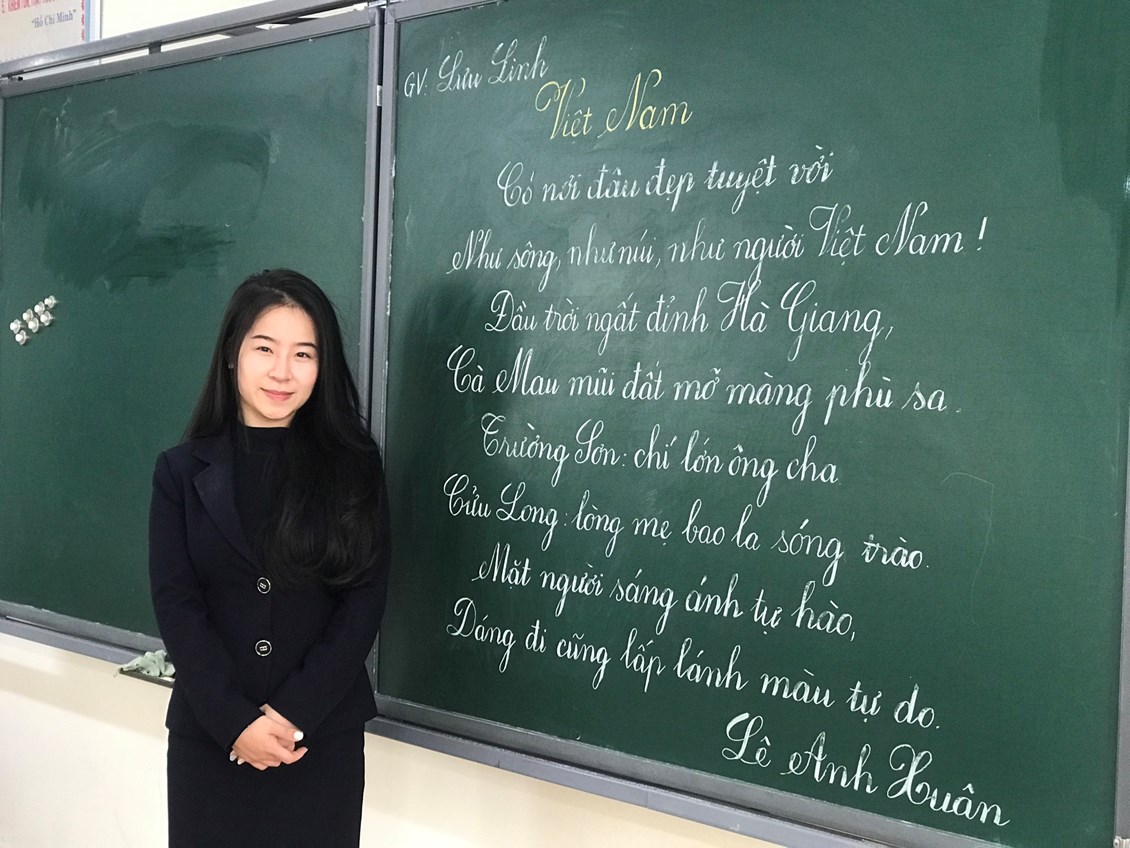 "Hồ Chí Minh"
GV: Lưu Linh
Việt Nam
Có nơi đâu đẹp tuyệt vời
Như sông, như núi, như người Việt Nam!
Đầu trời ngất đỉnh Hà Giang,
Cà Mau mũi đất mỡ màng phù sa.
Trường Sơn: chí lớn ông cha
Cửu Long: lòng mẹ bao la sóng trào.
Mặt người sáng ánh tự hào,
Dáng đi cũng lấp lánh màu tự do.
Lê Anh Xuân